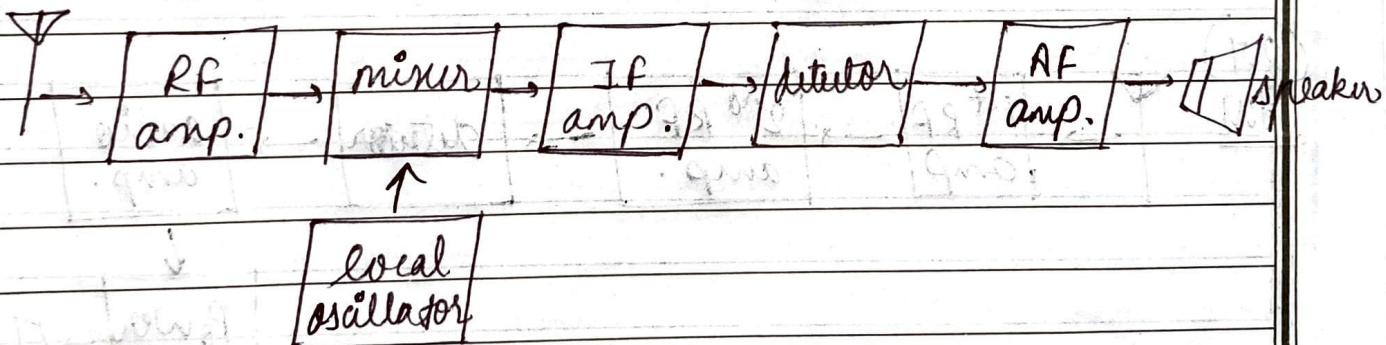 RF
amp.
mixer
IF
amp.
detector
AF
amp.
speaker
local
oscillator